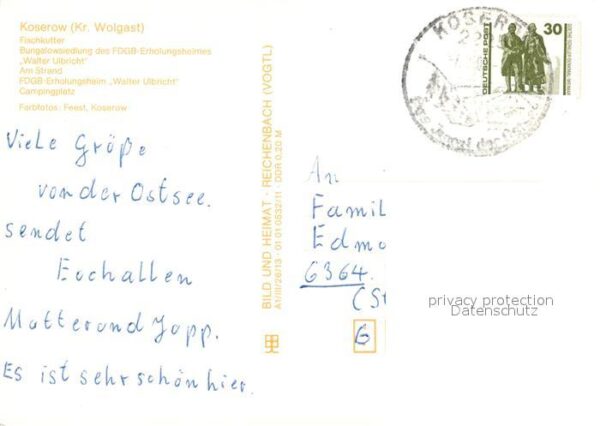 Koserow (Kr. Wolgast)
Fischkutter
Bungalowsiedlung des FDGB-Erholungsheimes
„Walter Ulbricht"
Am Strand
FDGB-Erholungsheim „Walter Ulbricht"
Campingplatz
Farbfotos: Feest, Koserow
Viele Größe
von der Ostsee.
sendet
Euch allen
Mutter und Jopp.
Es ist sehr schön hier.
BILD UND HEIMAT · REICHENBACH (VOGTL)
A1/III/26/13 · 01 01 0532/11 · DDR 0,20 M
KOSER
DEUTSCHE POST
30
An
Famil
Edmo
6364.
(St
6
privacy protection
Datenschutz